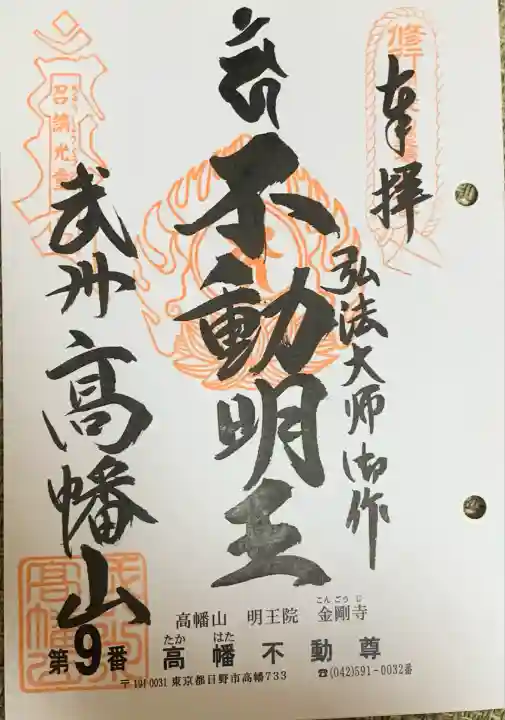 奉拝
弘法大師御作
不動明王
武州高幡山
高幡山 明王院 金剛寺
こんごうじ
第9番
高幡不動尊
たか はた
〒191-0031 東京都日野市高幡733 ☎(042)591-0032番